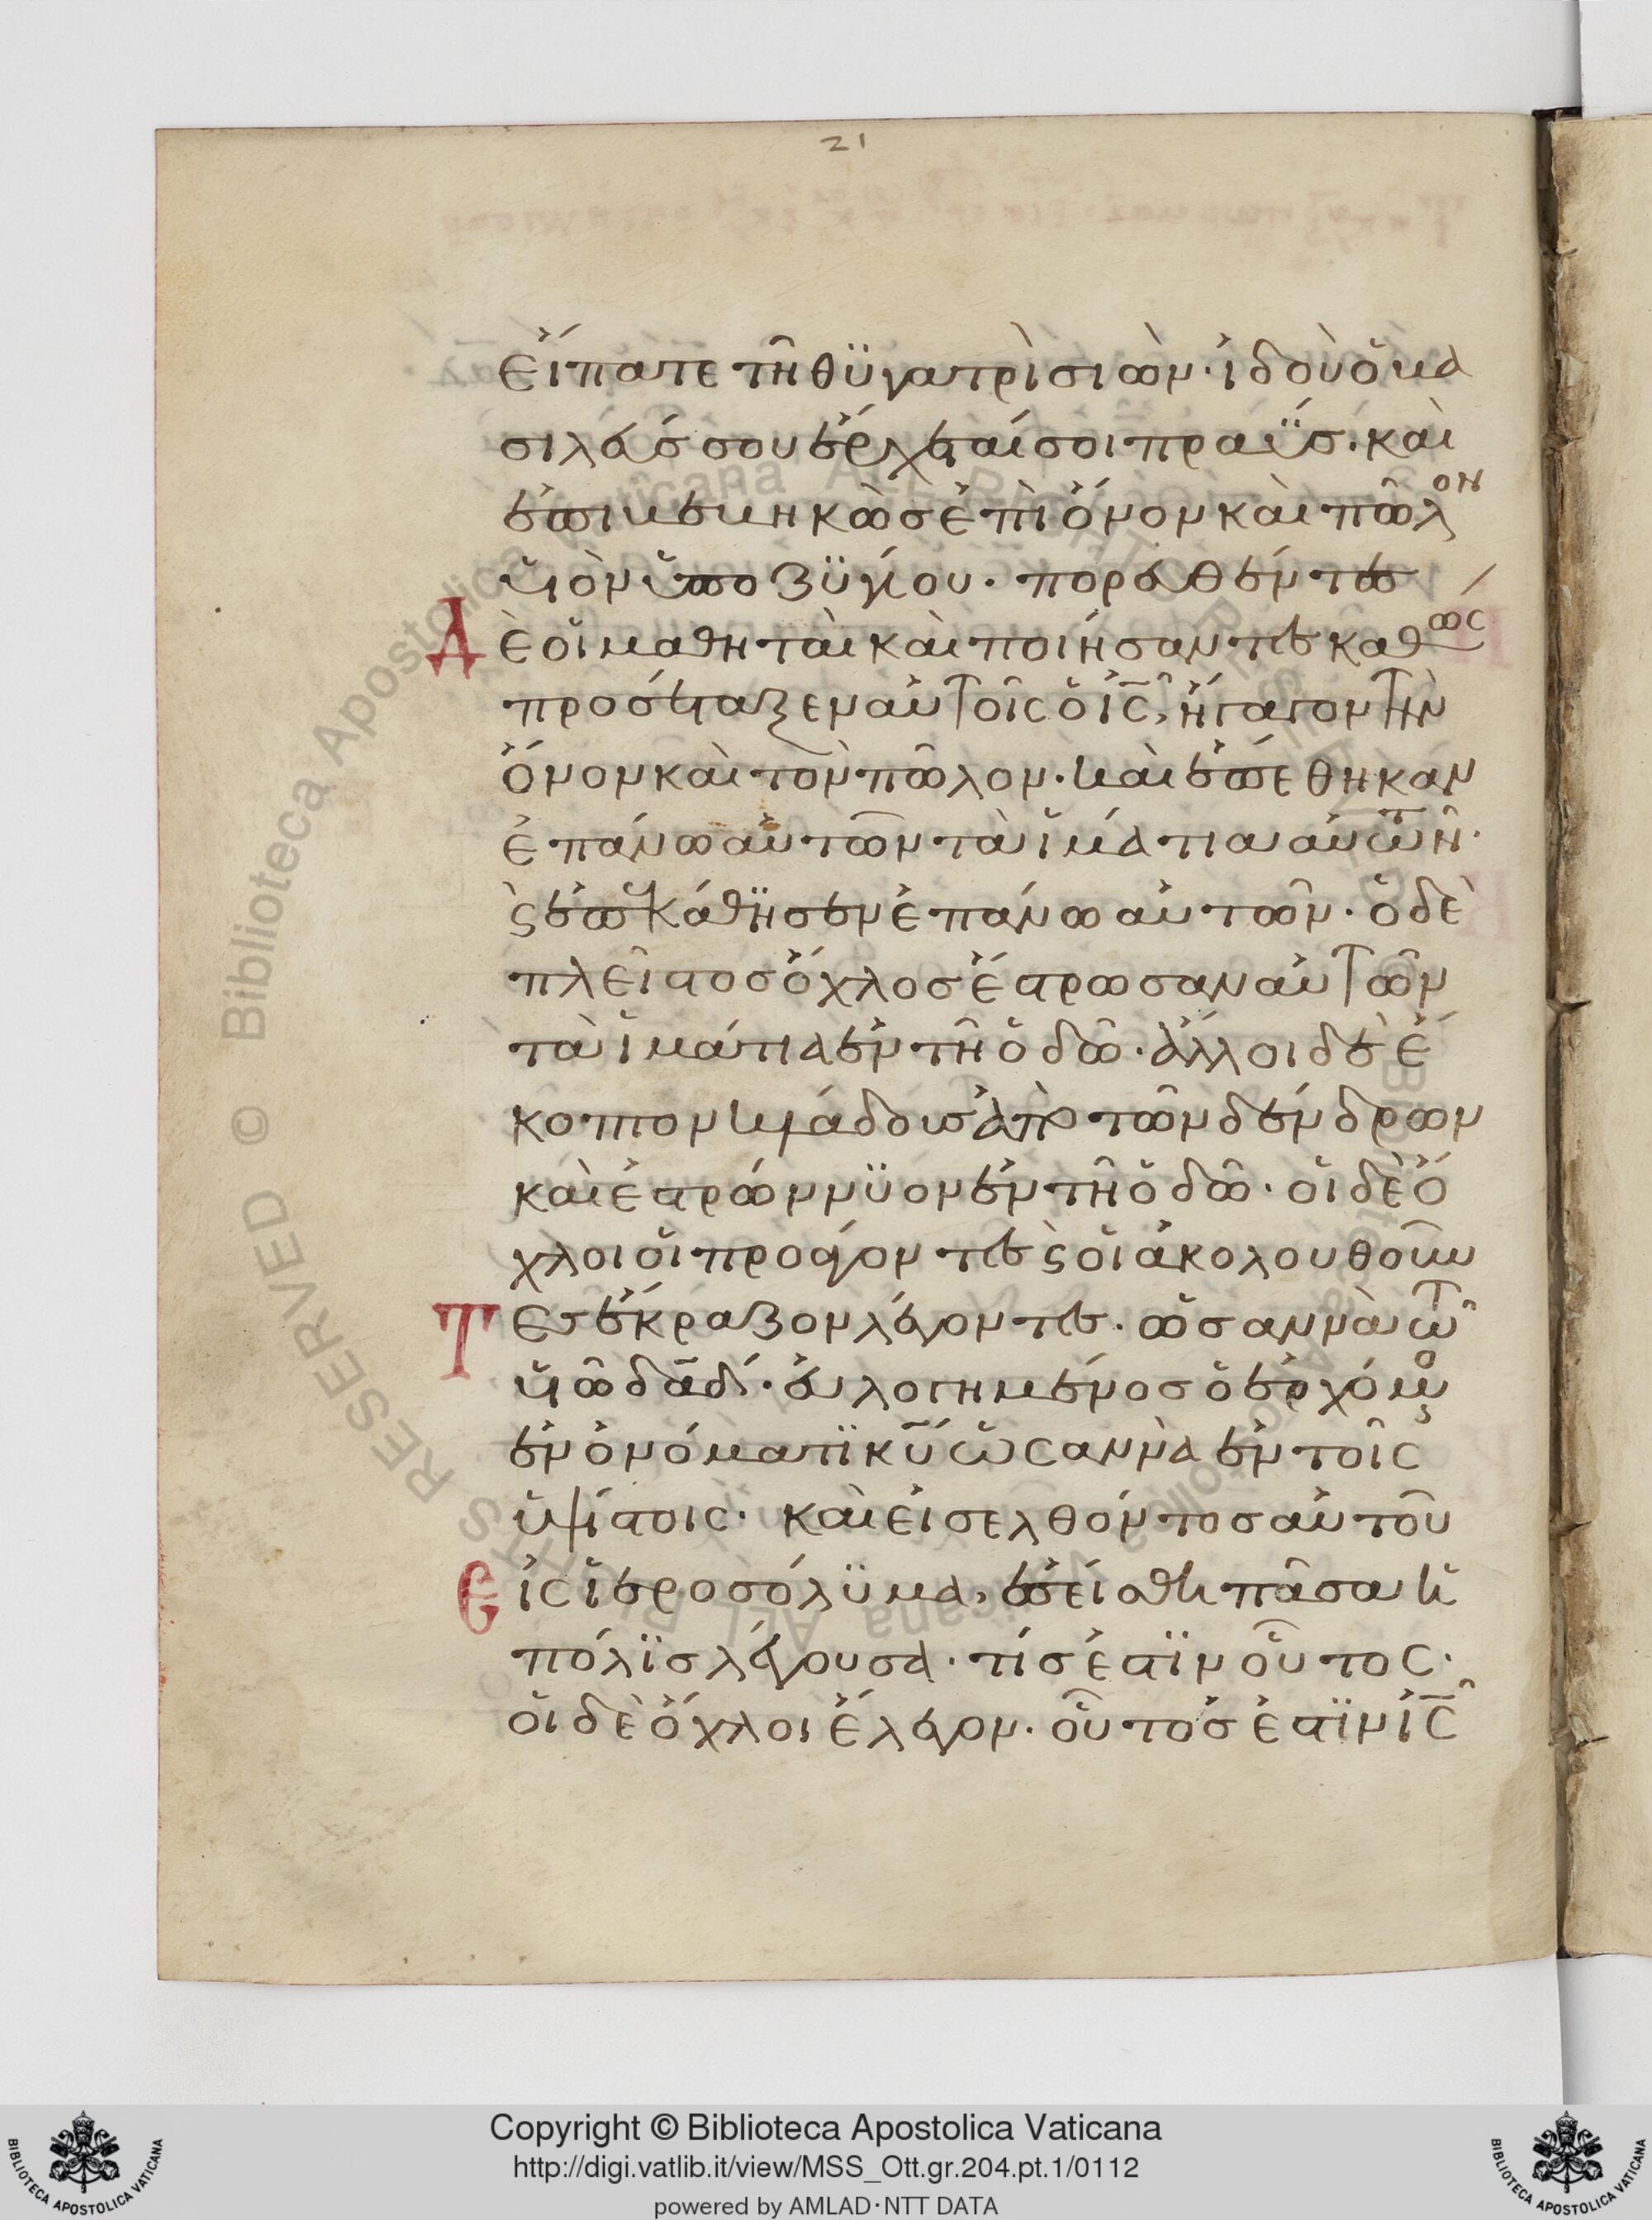 21
εἴπατε τῆ θϋγατρὶ σιών· ἰδοὺ ὁ βα
σιλεύς σου ἔρχεταί σοι πραΰσ· καὶ
ἐπιβεβηκὼσ ἐπὶ ὄνον καὶ πῶλον
υἱὸν ὑποζϋγίου· πορευθέντεσ
Δὲ οἱ μαθηταὶ καὶ ποιήσαντεσ καθὼς
προσέταξεν αὐτοῖς ὁ ις̅, ἤγαγον τὴν
ὄνον καὶ τὸν πῶλον· καὶ ἐπέθηκαν
ἐπάνω αὐτῶν τὰ ἱμάτια αὐτῶν·
ϛ ἐπεκάθϊσεν ἐπάνω αὐτῶν· ὁ δὲ
πλεῖστοσ ὄχλοσ ἔστρωσαν αὐτῶν
τὰ ἱμάτια ἐν τῆ ὁδῶ· ἄλλοι δὲ ἔ
κοπτον κλάδουσ ἀπὸ τῶν δένδρων
καὶ ἐστρώννϋον ἐν τῆ ὁδῶ· οἱ δὲ ὄ
χλοι οἱ προάγοντεσ ϛ οἱ ἀκολουθοῦν
Τεσ ἔκραζον λέγοντεσ· ὡσαννὰ τῶ
υἱῶ δαδ̅· εὐλογημένοσ ὁ ἐρχόμενος
ἐν ὀνόματϊ κυ̅ ὡσαννὰ ἐν τοῖς
ὑψίστοις· καὶ εἰσελθόντοσ αὐτοῦ
Εἰς ἱεροσόλϋμα, ἐσείσθη πᾶσα ἡ
πόλϊσ λέγουσα· τίσ ἐστϊν οὗτος·
οἱ δὲ ὄχλοι ἔλεγον· οὗτόσ ἐστϊν ις̅
Biblioteca Apostolica Vaticana ALL RIGHTS RESERVED ©
Copyright © Biblioteca Apostolica Vaticana
http://digi.vatlib.it/view/MSS_Ott.gr.204.pt.1/0112
powered by AMLAD·NTT DATA
BIBLIOTECA APOSTOLICA VATICANA
BIBLIOTECA APOSTOLICA VATICANA